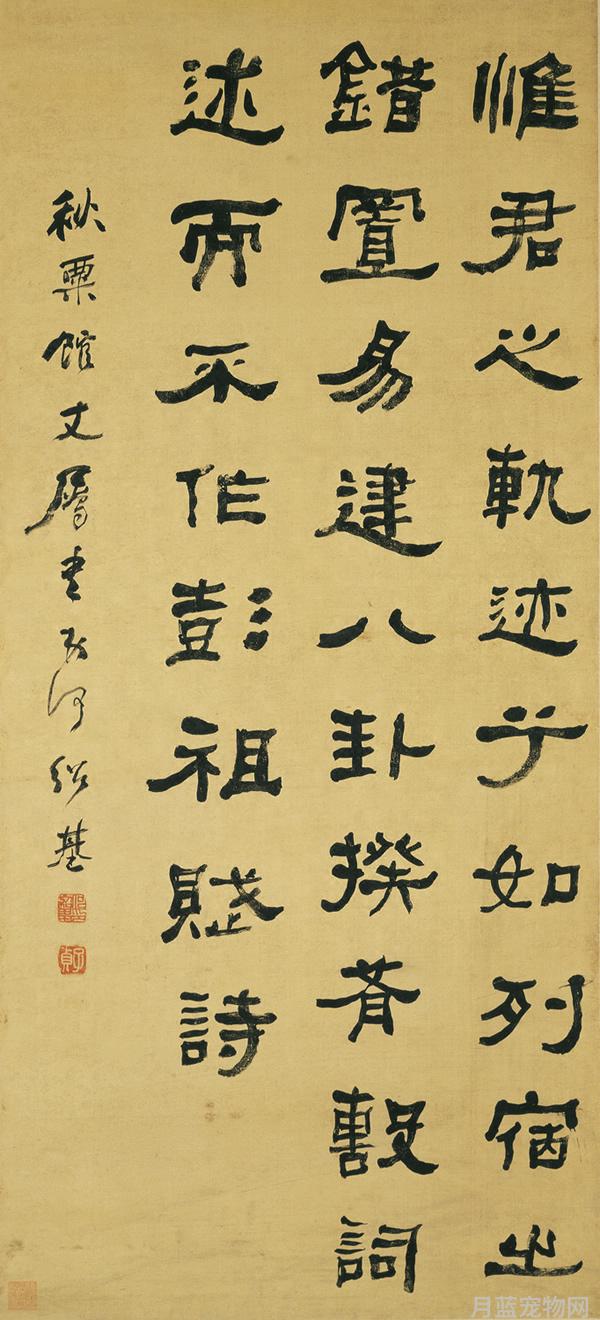 惟君之軌迹兮如列宿之
錯置易建八卦揆肴毄詞
述而不作彭祖賦詩
秋粟館丈屬書弟何紹基
子貞
月蓝宠物网